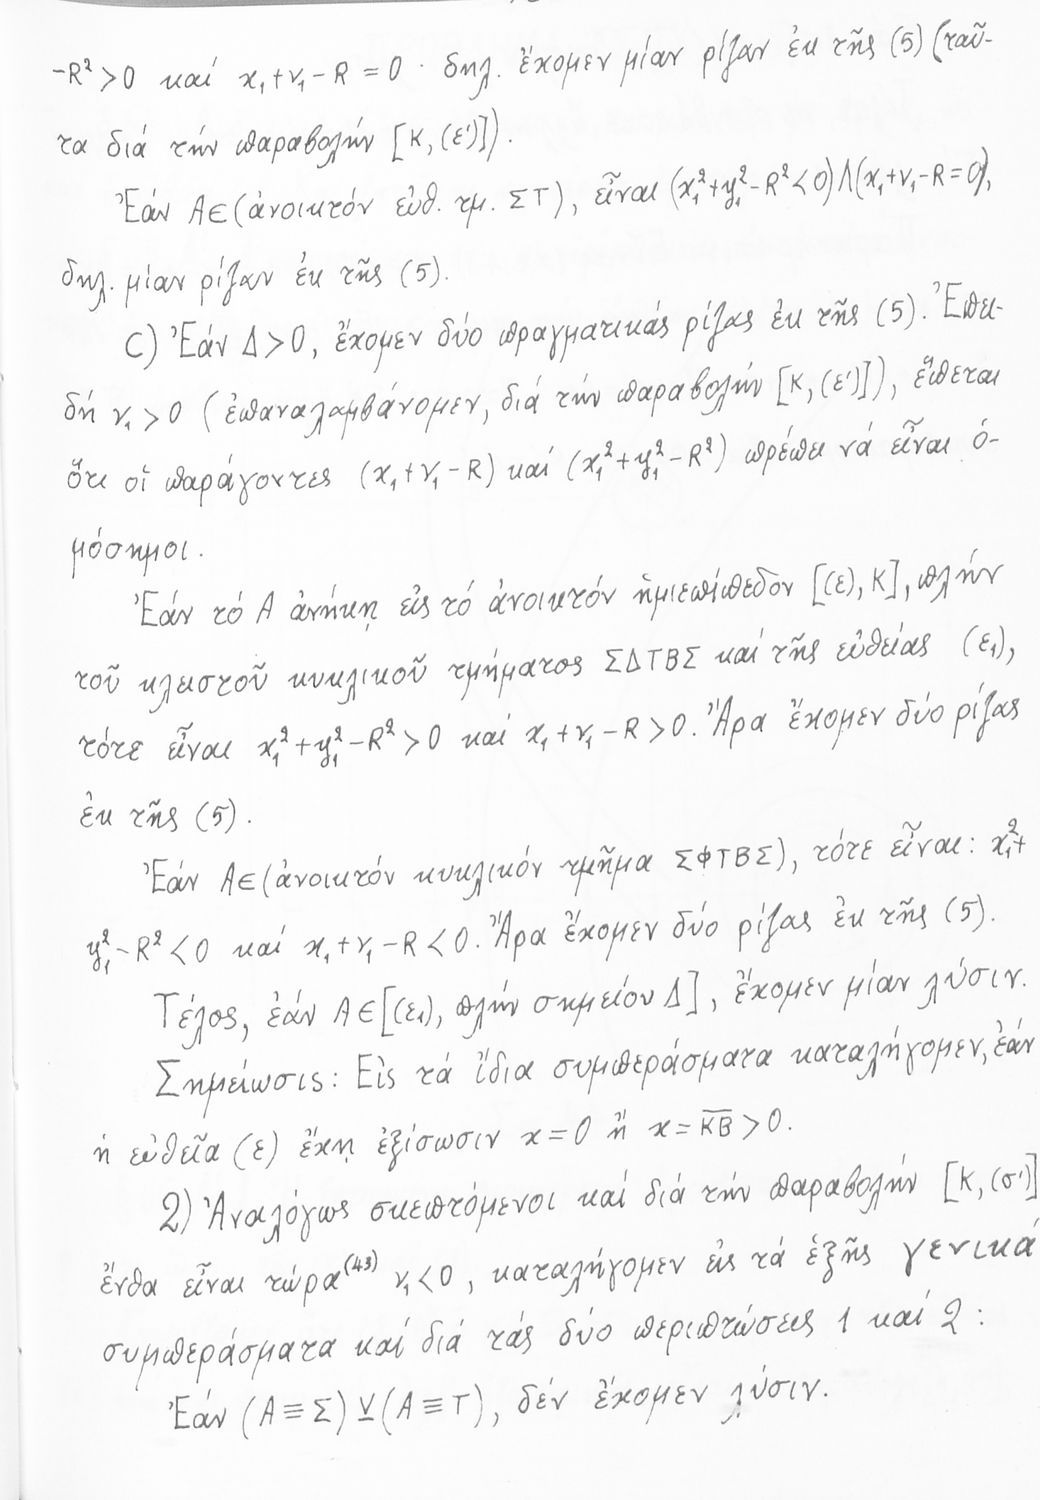 -R²>0 καί x₁+ν₁-R=0· δηλ. ἔχομεν μίαν ρίζαν ἐκ τῆς (5) (ταῦ-
τα διά τήν παραβολήν [Κ,(ε′)]).
Ἐάν Α∈(ἀνοικτόν εὐθ. τμ. ΣΤ), εἶναι (x₁²+y₁²-R²<0)Λ(x₁+ν₁-R=0),
δηλ. μίαν ρίζαν ἐκ τῆς (5).
C) Ἐάν Δ>0, ἔχομεν δύο πραγματικάς ρίζας ἐκ τῆς (5). Ἐπει-
δή ν₁>0 (ἐπαναλαμβάνομεν, διά τήν παραβολήν [Κ,(ε′)]), ἕπεται
ὅτι οἱ παράγοντες (x₁+ν₁-R) καί (x₁²+y₁²-R²) πρέπει νά εἶναι ὁ-
μόσημοι.
Ἐάν τό Α ἀνήκῃ εἰς τό ἀνοικτόν ἡμιεπίπεδον [(ε),Κ], πλήν
τοῦ κλειστοῦ κυκλικοῦ τμήματος ΣΔΤΒΣ καί τῆς εὐθείας (ε₁),
τότε εἶναι x₁²+y₁²-R²>0 καί x₁+ν₁-R>0. Ἄρα ἔχομεν δύο ρίζας
ἐκ τῆς (5).
Ἐάν Α∈(ἀνοικτόν κυκλικόν τμῆμα ΣΦΤΒΣ), τότε εἶναι: x₁²+
y₁²-R²<0 καί x₁+ν₁-R<0. Ἄρα ἔχομεν δύο ρίζας ἐκ τῆς (5).
Τέλος, ἐάν Α∈[(ε₁), πλήν σημείου Δ], ἔχομεν μίαν λύσιν.
Σημείωσις: Εἰς τά ἴδια συμπεράσματα καταλήγομεν, ἐάν
ἡ εὐθεῖα (ε) ἔχῃ ἐξίσωσιν x=0 ἤ x=K̅B̅>0.
2) Ἀναλόγως σκεπτόμενοι καί διά τήν παραβολήν [Κ,(σ′)]
ἔνθα εἶναι τώρα⁽⁴³⁾ ν₁<0, καταλήγομεν εἰς τά ἑξῆς γενικά
συμπεράσματα καί διά τάς δύο περιπτώσεις 1 καί 2:
Ἐάν (Α≡Σ)⊻(Α≡Τ), δέν ἔχομεν λύσιν.